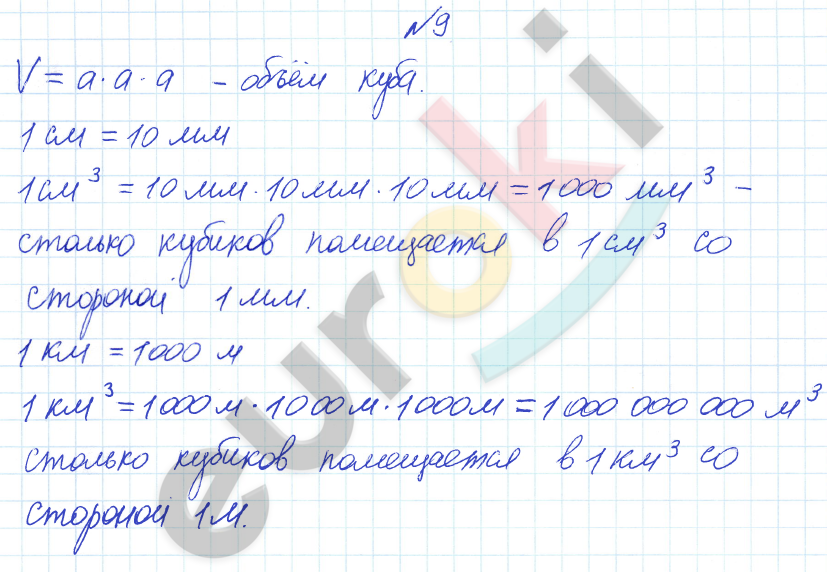 №9
V = a·a·a - объём куба.
1 см = 10 мм
1 см³ = 10 мм·10 мм·10 мм = 1000 мм³ -
столько кубиков помещается в 1 см³ со
стороной 1 мм.
1 км = 1000 м
1 км³ = 1000 м·1000 м·1000 м = 1 000 000 000 м³
столько кубиков помещается в 1 км³ со
стороной 1 м.
euroki